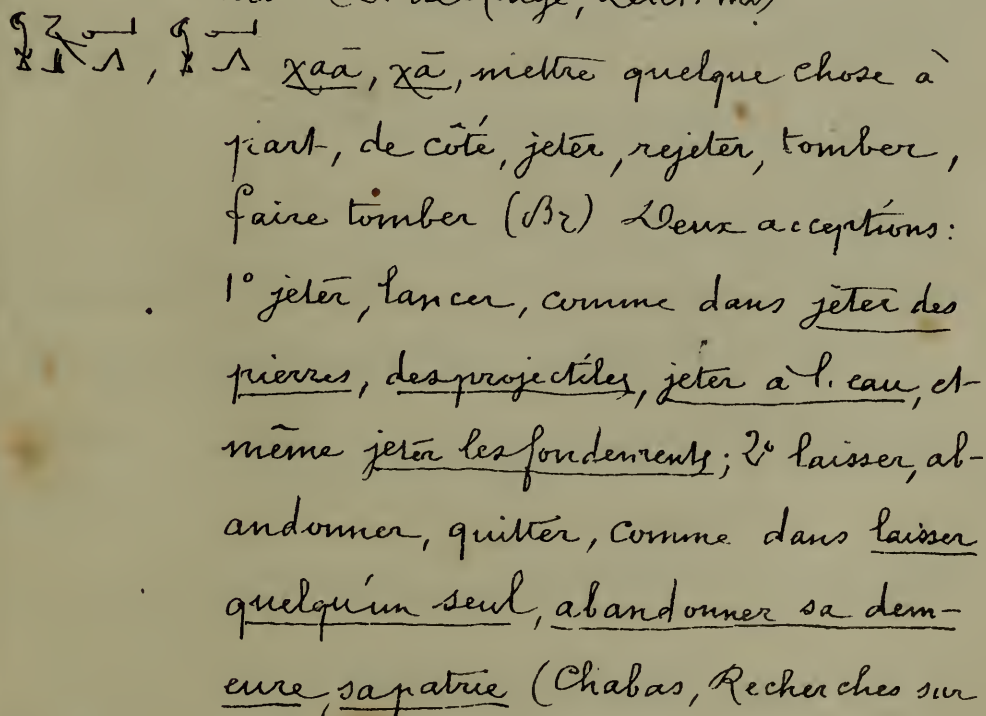 χaā, χā, mettre quelque chose à
part, de côté, jeter, rejeter, tomber,
faire tomber (Br) Deux acceptions:
1° jeter, lancer, comme dans jeter des
pierres, des projectiles, jeter à l'eau, et
même jeter les fondements; 2° laisser, ab-
andonner, quitter, comme dans laisser
quelqu'un seul, abandonner sa dem-
eure, sa patrie (Chabas, Recherches sur